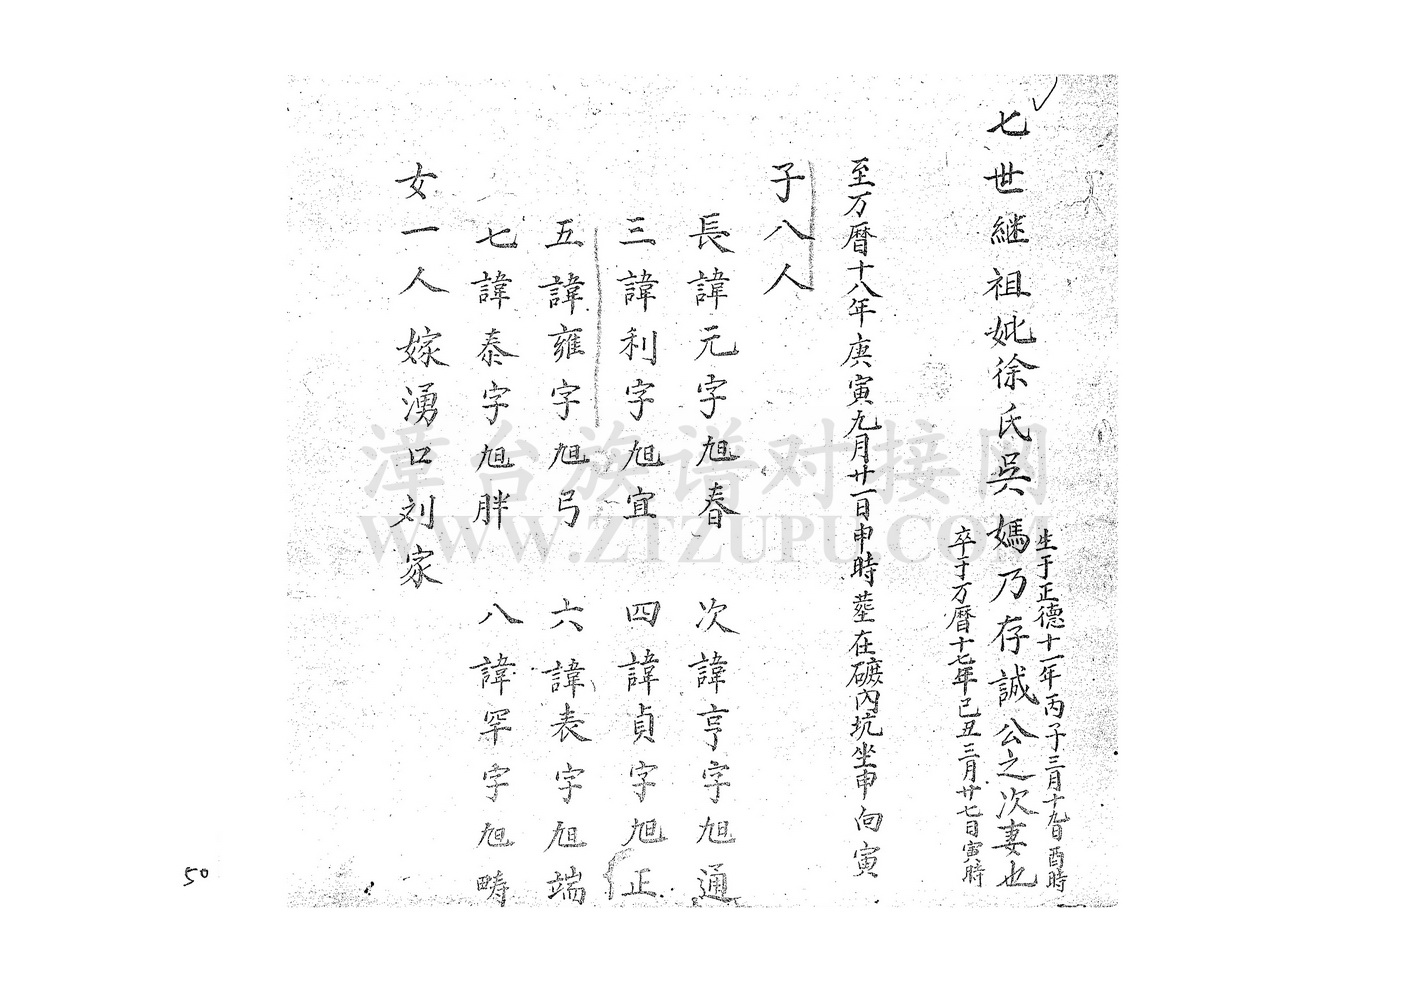 七世継祖妣徐氏吳媽乃存誠公之次妻也
生于正德十一年丙子三月十九日酉時
卒于万曆十七年己丑三月廿七日寅時
至万曆十八年庚寅九月廿一日申時塟在礦內坑坐申向寅
子八人
長諱元字旭春 次諱亨字旭通
三諱利字旭宜 四諱貞字旭正
五諱雍字旭弓 六諱表字旭端
七諱泰字旭胖 八諱罕字旭疇
女一人嫁湧口刘家
50
漳台族谱对接网
WWW.ZTZUPU.COM